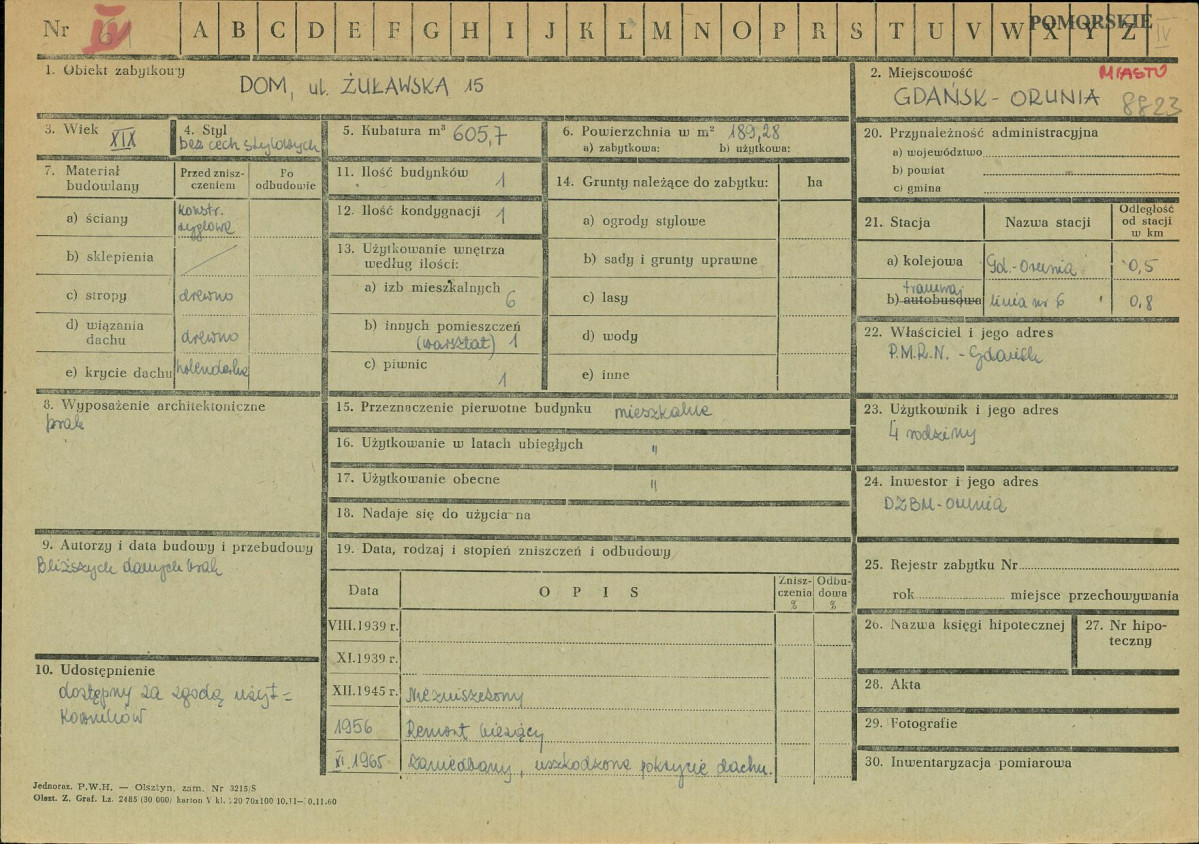 Nr IV A B C D E F G H I J K L Ł M N O P R S T U V W X Y Z POMORSKIE IV
1. Obiekt zabytkowy
DOM, ul. ŻUŁAWSKA 15
2. Miejscowość MIASTO
GDAŃSK - ORUNIA 8823
3. Wiek XIX
4. Styl
bez cech stylowych
5. Kubatura m³ 605,7
6. Powierzchnia w m² 189,28
a) zabytkowa: b) użytkowa:
7. Materiał budowlany
Przed zniszczeniem
Po odbudowie
a) ściany konstr. ryglowa
b) sklepienia
c) stropy drewno
d) wiązania dachu drewno
e) krycie dachu holenderka
8. Wyposażenie architektoniczne
brak
9. Autorzy i data budowy i przebudowy
Bliższych danych brak
10. Udostępnienie
dostępny za zgodą użyt=
kowników
11. Ilość budynków 1
12. Ilość kondygnacji 1
13. Użytkowanie wnętrza
według ilości:
a) izb mieszkalnych 6
b) innych pomieszczeń
(warsztat) 1
c) piwnic 1
14. Grunty należące do zabytku: ha
a) ogrody stylowe
b) sady i grunty uprawne
c) lasy
d) wody
e) inne
15. Przeznaczenie pierwotne budynku mieszkalne
16. Użytkowanie w latach ubiegłych "
17. Użytkowanie obecne "
18. Nadaje się do użycia na
19. Data, rodzaj i stopień zniszczeń i odbudowy
Data O P I S Zniszczenia % Odbudowa %
VIII.1939 r.
XI.1939 r.
XII.1945 r. Niezniszczony
1956 Remont bieżący
XI.1965 Zaniedbany, uszkodzone pokrycie dachu.
20. Przynależność administracyjna
a) województwo
b) powiat
c) gmina
21. Stacja Nazwa stacji Odległość od stacji w km
a) kolejowa Gd.-Orunia 0,5
tramwaj
b) autobusowa linia nr 6 0,8
22. Właściciel i jego adres
P.M.R.N. - Gdańsk
23. Użytkownik i jego adres
4 rodziny
24. Inwestor i jego adres
DZBM-Orunia
25. Rejestr zabytku Nr
rok miejsce przechowywania
26. Nazwa księgi hipotecznej
27. Nr hipoteczny
28. Akta
29. Fotografie
30. Inwentaryzacja pomiarowa
Jednoraz. P.W.H. — Olsztyn, zam. Nr 3215/S
Olszt. Z. Graf. Lz. 2485 (30 000) karton V kl.